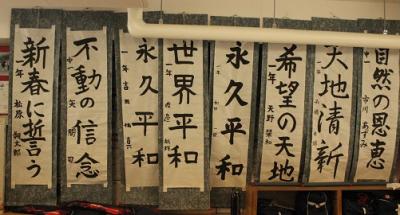 自然の恩恵
中一 市川 あずみ
大地清新
希望の天地
一年 天野 栞和
永久平和
世界平和
一年
永久平和
一年
不動の信念
新春に誓う
一年 松原 翔太郎